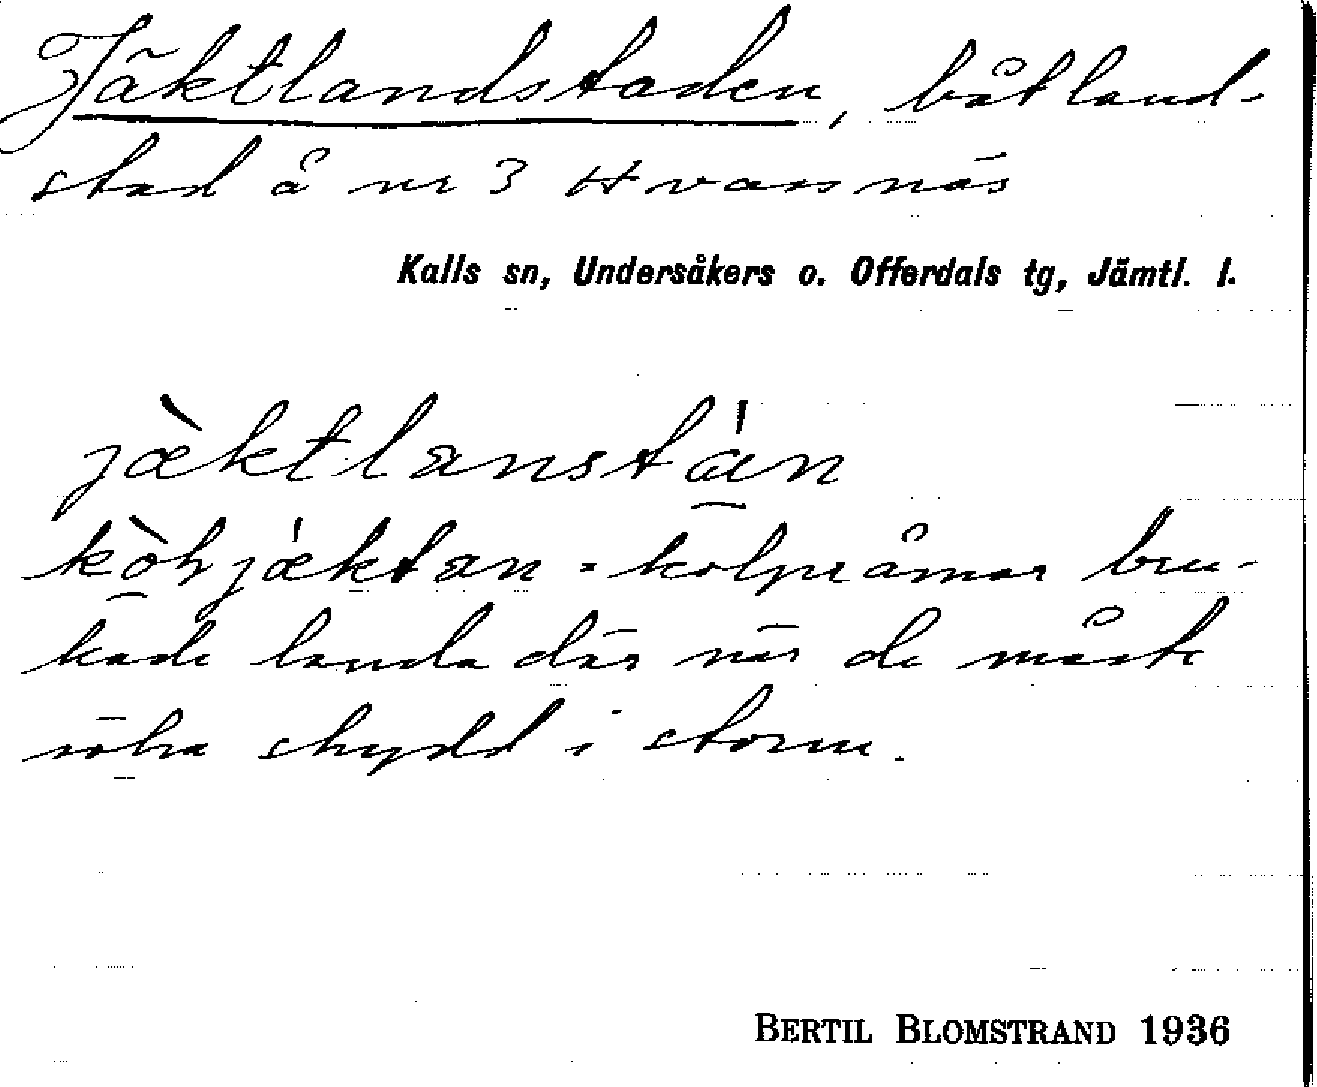 Jäktlandstaden, båtland-
stad å nr 3 Hvassnäs
Kalls sn, Undersåkers o. Offerdals tg, Jämtl. l.
jæ̀ktlanstán
kòḷjæ̀ktan - kolpråmar bru-
kade landa där när de måste
söka skydd i storm.
BERTIL BLOMSTRAND 1936